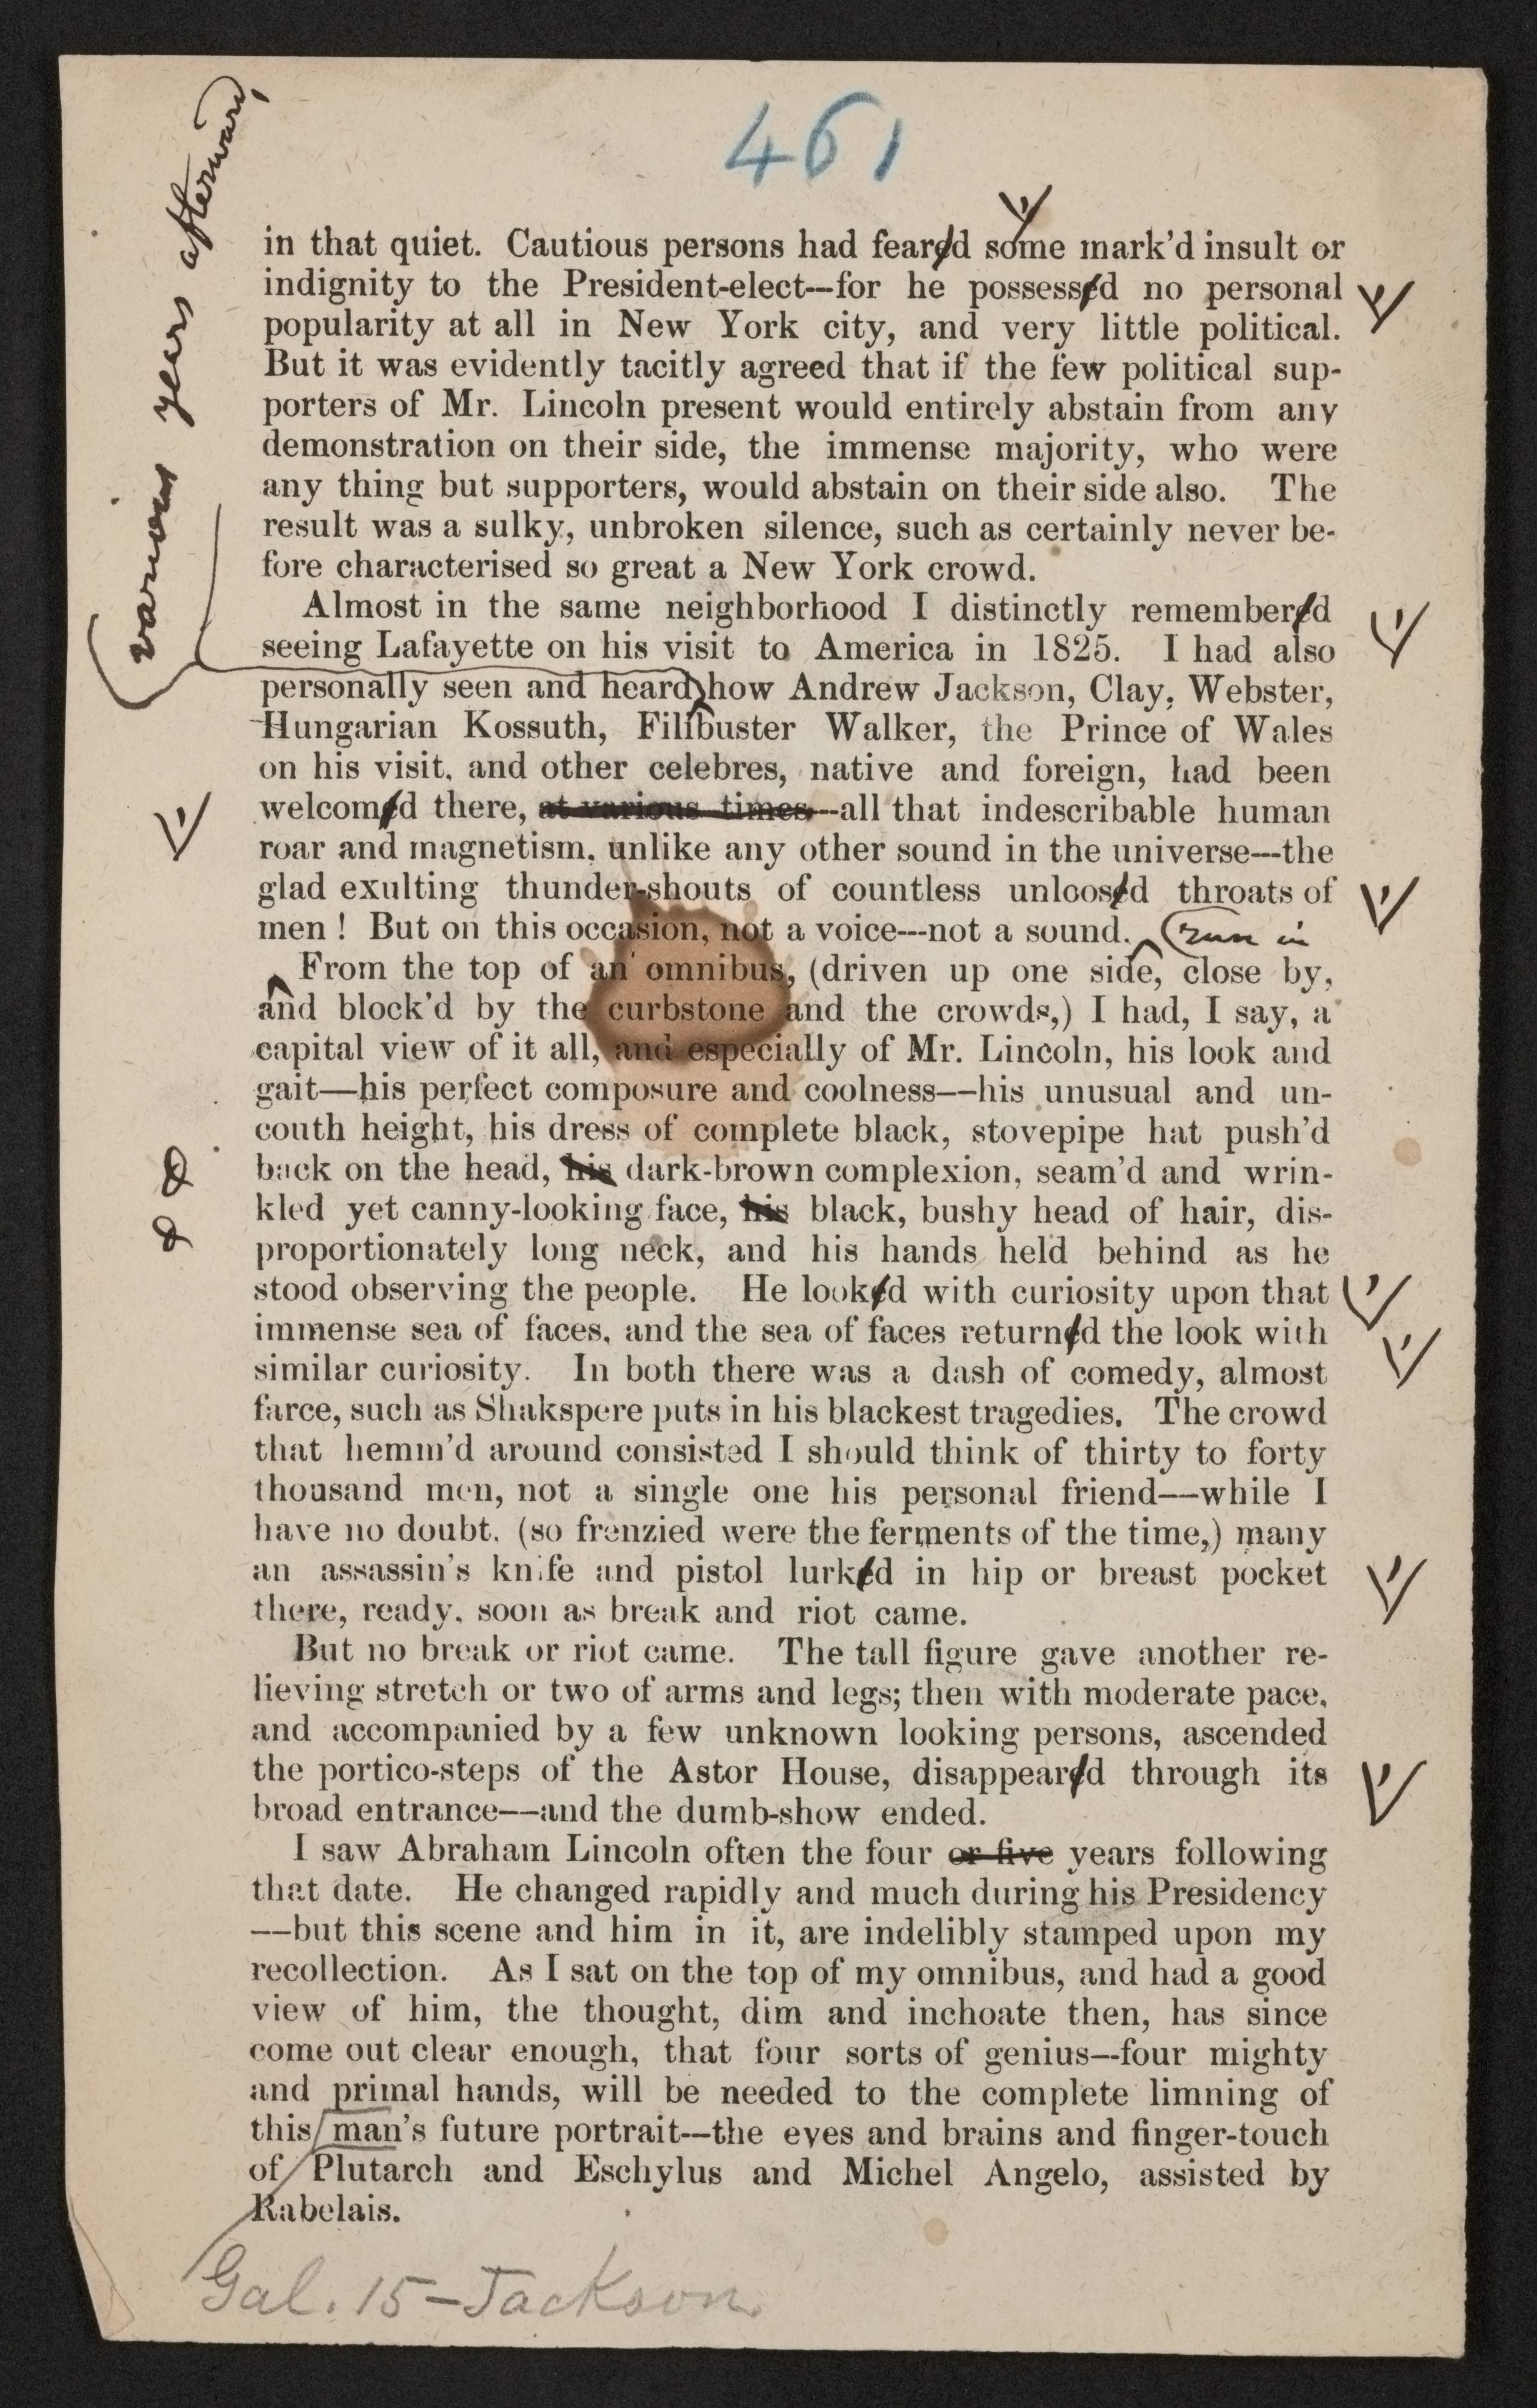 461
various years afterward,
in that quiet. Cautious persons had feared some mark'd insult or
indignity to the President-elect—for he possessed no personal
popularity at all in New York city, and very little political.
But it was evidently tacitly agreed that if the few political sup-
porters of Mr. Lincoln present would entirely abstain from any
demonstration on their side, the immense majority, who were
any thing but supporters, would abstain on their side also. The
result was a sulky, unbroken silence, such as certainly never be-
fore characterised so great a New York crowd.
Almost in the same neighborhood I distinctly remembered
seeing Lafayette on his visit to America in 1825. I had also
personally seen and heard, how Andrew Jackson, Clay, Webster,
Hungarian Kossuth, Filibuster Walker, the Prince of Wales
on his visit, and other celebres, native and foreign, had been
welcomed there, at various times—all that indescribable human
roar and magnetism, unlike any other sound in the universe—the
glad exulting thunder-shouts of countless unloosed throats of
men ! But on this occasion, not a voice—not a sound. run in
From the top of an omnibus, (driven up one side, close by,
and block'd by the curbstone and the crowds,) I had, I say, a
capital view of it all, and especially of Mr. Lincoln, his look and
gait—his perfect composure and coolness—his unusual and un-
couth height, his dress of complete black, stovepipe hat push'd
back on the head, his dark-brown complexion, seam'd and wrin-
kled yet canny-looking face, his black, bushy head of hair, dis-
proportionately long neck, and his hands held behind as he
stood observing the people. He looked with curiosity upon that
immense sea of faces, and the sea of faces returned the look with
similar curiosity. In both there was a dash of comedy, almost
farce, such as Shakspere puts in his blackest tragedies. The crowd
that hemm'd around consisted I should think of thirty to forty
thousand men, not a single one his personal friend—while I
have no doubt, (so frenzied were the ferments of the time,) many
an assassin's knife and pistol lurked in hip or breast pocket
there, ready, soon as break and riot came.
But no break or riot came. The tall figure gave another re-
lieving stretch or two of arms and legs; then with moderate pace,
and accompanied by a few unknown looking persons, ascended
the portico-steps of the Astor House, disappeared through its
broad entrance—and the dumb-show ended.
I saw Abraham Lincoln often the four or five years following
that date. He changed rapidly and much during his Presidency
—but this scene and him in it, are indelibly stamped upon my
recollection. As I sat on the top of my omnibus, and had a good
view of him, the thought, dim and inchoate then, has since
come out clear enough, that four sorts of genius—four mighty
and primal hands, will be needed to the complete limning of
this man's future portrait—the eyes and brains and finger-touch
of Plutarch and Eschylus and Michel Angelo, assisted by
Rabelais.
Gal. 15 - Jackson.